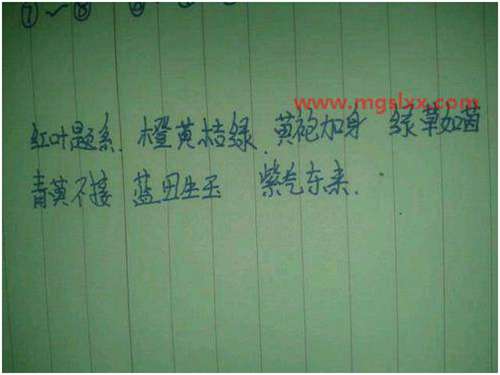 ①~⑧
www.mgslxx.com
红叶题系. 橙黄桔绿. 黄袍加身 绿草如茵
青黄不接 蓝田生玉 紫气东来.